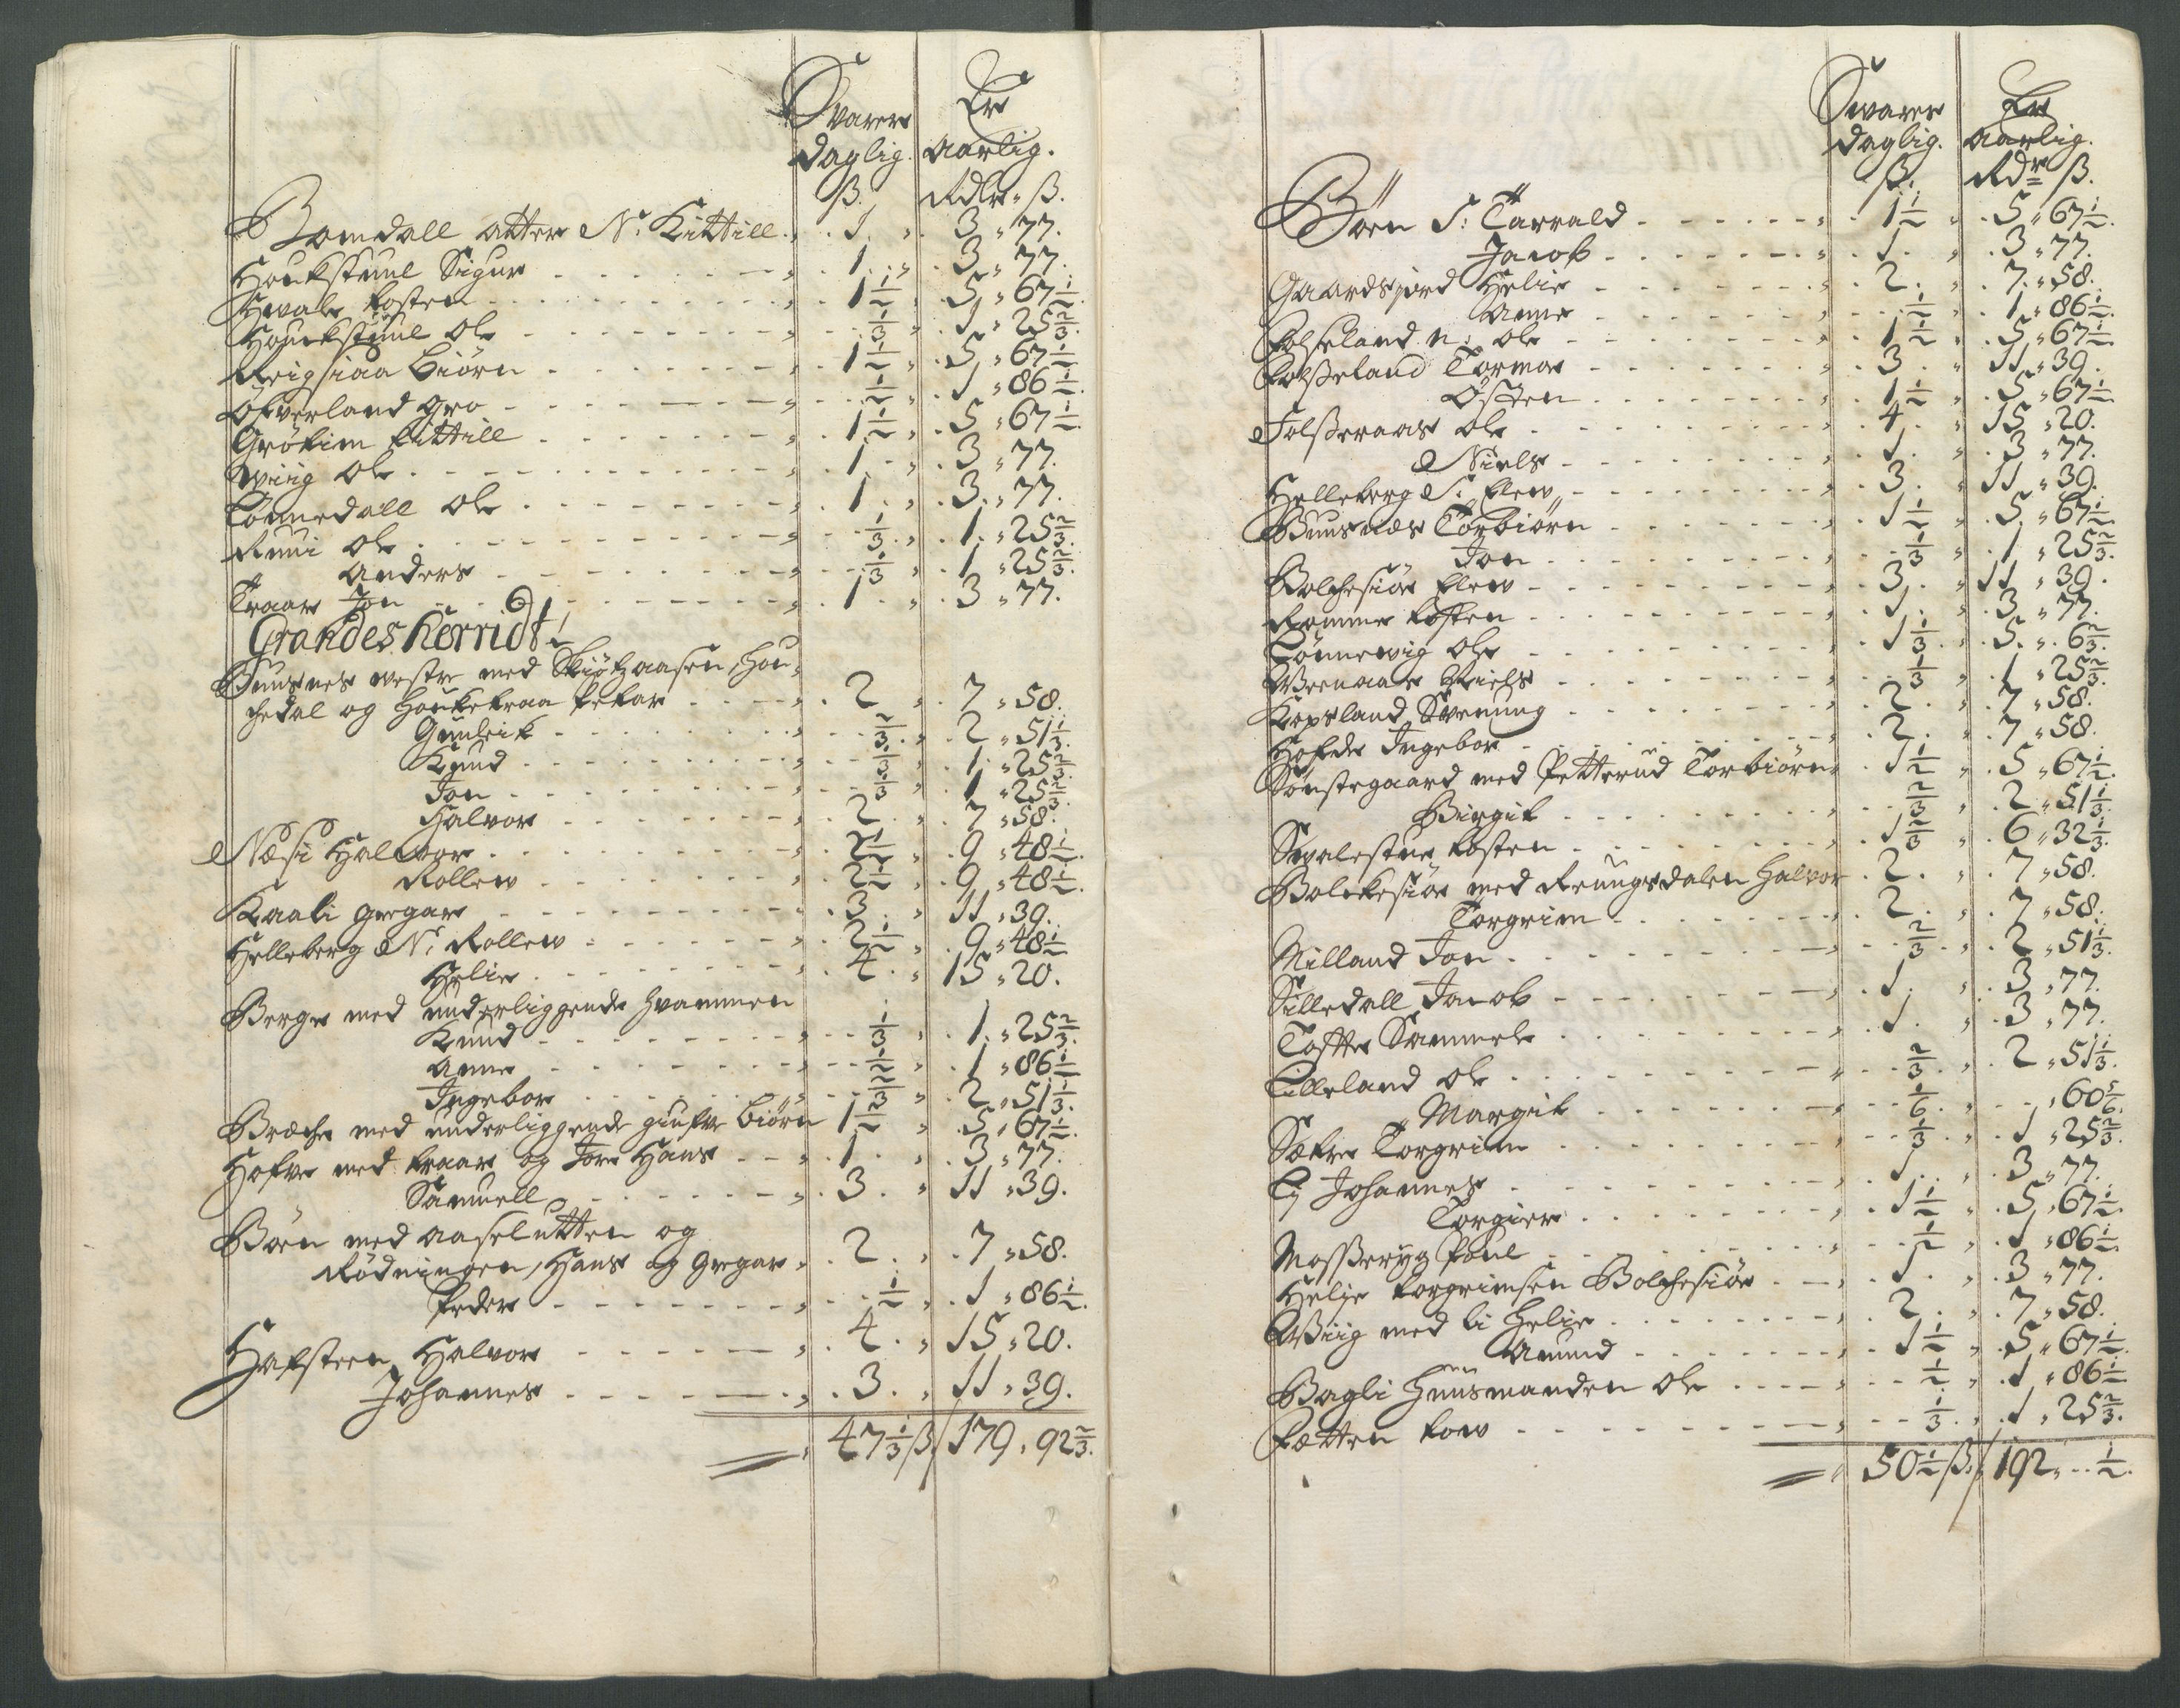 Svarer
daglig.
ß.
Er
aarlig.
Rdlr. ß.
Bomdall atter N: Kittill 1. 3 " 77.
Houkstuul Sigur 1. 3 " 77.
Hvale Tosten 1 1/2 5 " 67 1/2.
Houkstuul Ole 1/3 1 " 25 2/3.
Reigsiaa Biørn 1 1/2 5 " 67 1/2
Øfverland Gro 1/2 1 " 86 1/2
Grøtim Kittill 1 1/2 5 " 67 1/2
Wiig Ole 1. 3 " 77.
Tønnedall Ole 1. 3 " 77.
Ruui Ole 1/3 1 " 25 2/3
Anders 1/3 1 " 25 2/3.
Traar Jon 1. 3 " 77.
Grandes Herridt
Buusnes vestre med Skiøtaasen, Hou-
chedal og Houketraa Peter 2 7 " 58.
Gunleik 2/3 2 " 51 1/3.
Knud 1/3 1 " 25 2/3.
Jon 1/3 1 " 25 2/3.
Halvor 2. 7 " 58.
Næsi Halvor 2 1/2 9 " 48 1/2.
Rollew 2 1/2 9 " 48 1/2.
Kaali Gregar 3. 11 " 39.
Helleberg N: Rollew 2 1/2 9 " 48 1/2
Helie 4. 15 " 20.
Berge med underliggende Hvammen
Knud 1/3 1 " 25 2/3
Anne 1/2 1 " 86 1/2
Ingebor 2/3 2 " 51 1/3.
Broche med underliggende Giufve Biørn 1 1/2 5 " 67 1/2.
Hofve med Traar og Jore Hans 1. 3 " 77.
Samuell 3. 11 " 39.
Bøen med Aaseslutten og
Rødningen, Hans og Gregar 2. 7 " 58.
Peder 1/2 1 " 86 1/2.
Hafsteen Halvor 4. 15 " 20.
Johannes 3. 11 " 39.
47 1/3 ß 179 " 92 2/3.
Svarer
daglig.
ß.
Er
aarlig.
Rdr ß.
Bøen S: Tarrald 1 1/2 5 " 67 1/2.
Jacob 1. 3 " 77.
Gaardsjord Helie 2. 7 " 58.
Anne 1/2 1 " 86 1/2.
Folseland n: Ole 1 1/2 5 " 67 1/2
Folßeland Tormo 3. 11 " 39.
Østen 1 1/2 5 " 67 1/2
Folßeraas Ole 4. 15 " 20.
Niels 1. 3 " 77.
Helleberg S: Elew 3. 11 " 39.
Buusnæs Torbiørn 1 1/2 5 " 67 1/2
Jon 1/3 1 " 25 2/3.
Bolchesiør Elew 3. 11 " 39.
Romme Tosten 1. 3 " 77.
Tønnewig Ole 1 1/3 5 " 6 2/3.
Niels 1/3 1 " 25 2/3.
Kopsland Svenung 2. 7 " 58.
Hofde Ingebor 2. 7 " 58.
Sønstegaard med Petterud Torbiørn 1 1/2 5 " 67 1/2.
Birgit 2/3 2 " 51 1/3.
Svalestue Tosten 1 2/3 6 " 32 1/3.
Bolckesiør med Reungsdalen Halvor 2. 7 " 58.
Torgrim 2. 7 " 58.
Milland Jon 2/3 2 " 51 1/3.
Silledall Jacob 1. 3 " 77.
Tofte Sammel 1. 3 " 77.
Tilleland Ole 2/3 2 " 51 1/3.
Margit 1/6 " 60 5/6.
Sætre Torgrim 1/3 1 " 25 2/3.
Li Johannes 1. 3 " 77.
Torgier 1 1/2 5 " 67 1/2.
Moßeryg Poul 1/2 1 " 86 1/2
Helje Torgrimsen Bolchesiør 1. 3 " 77.
Wiig med Li Helie 2. 7 " 58.
Amund 1 1/2 5 " 67 1/2.
Bagli Huusmanden Ole 1/2 1 " 86 1/2
Fætten Tow 1/3 1 " 25 2/3.
50 1/2 ß. 192 " 1/2.